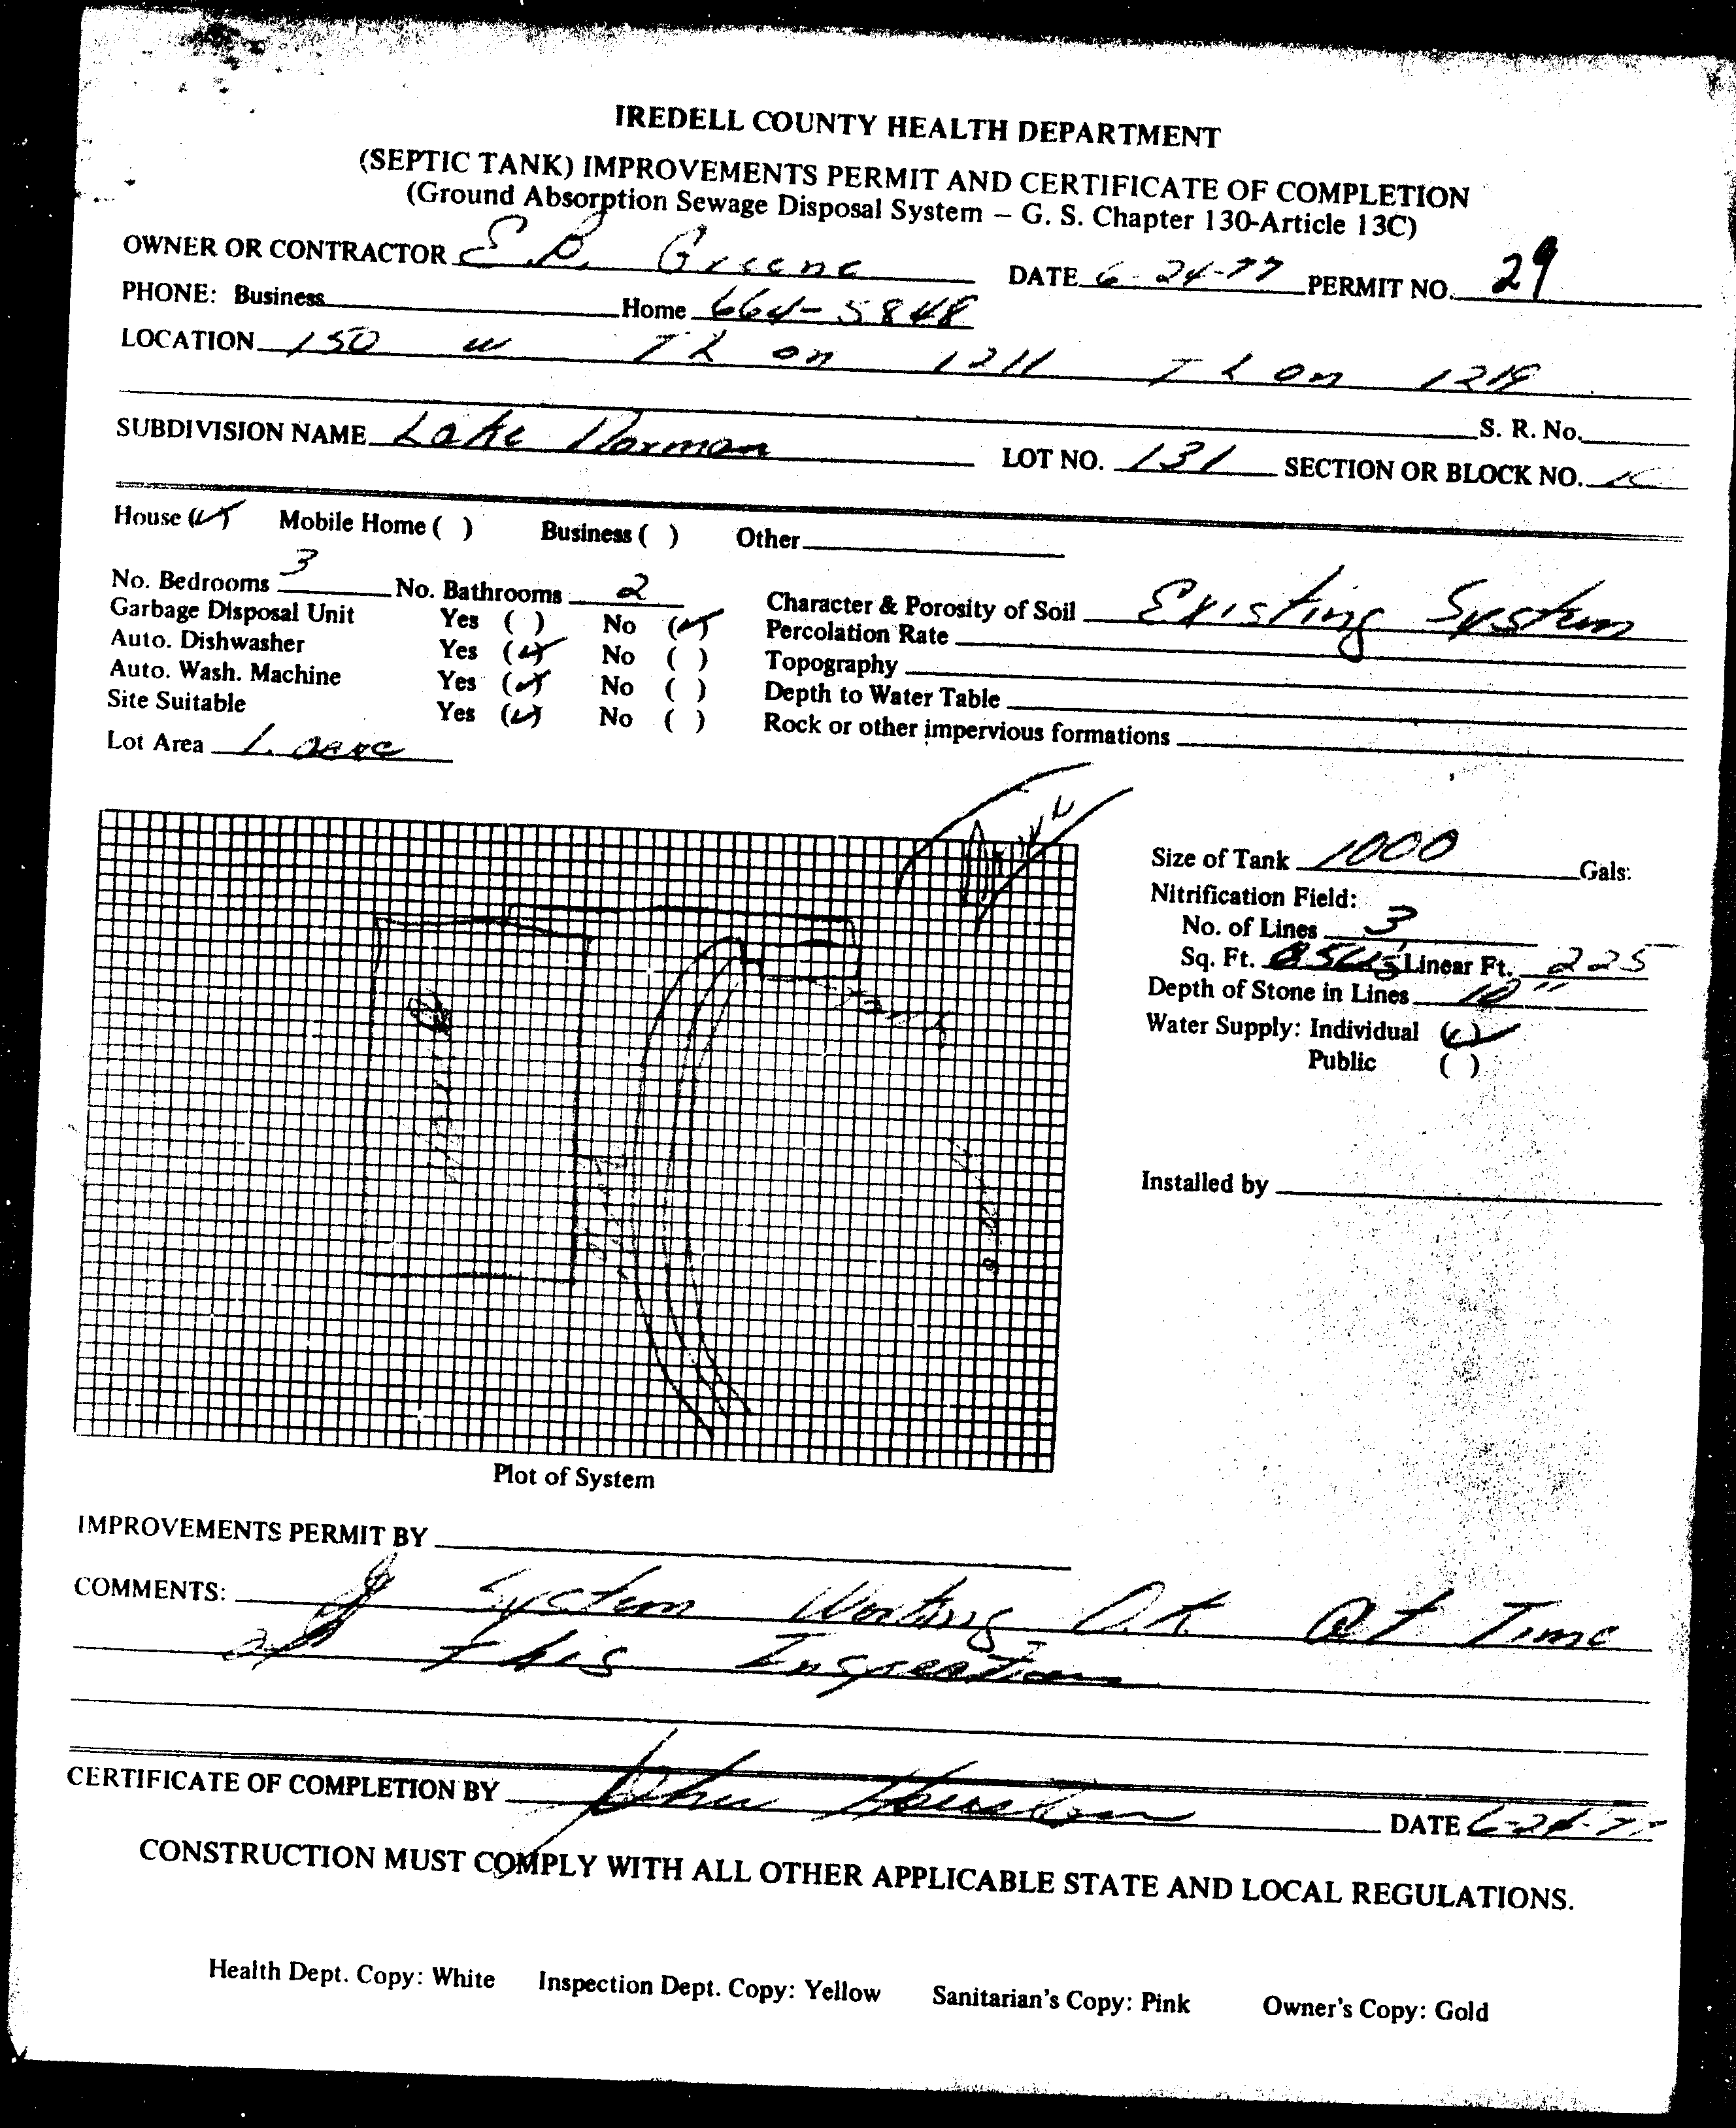 IREDELL COUNTY HEALTH DEPARTMENT
(SEPTIC TANK) IMPROVEMENTS PERMIT AND CERTIFICATE OF COMPLETION
(Ground Absorption Sewage Disposal System – G. S. Chapter 130-Article 13C)
OWNER OR CONTRACTOR E. B. Greene DATE 6-24-77 PERMIT NO. 29
PHONE: Business Home 664-5848
LOCATION 150 W T L on 1211 T L on 1219
S. R. No.
SUBDIVISION NAME Lake Norman LOT NO. 131 SECTION OR BLOCK NO.
House (✓) Mobile Home ( ) Business ( ) Other
No. Bedrooms 3 No. Bathrooms 2 Character & Porosity of Soil Existing System
Garbage Disposal Unit Yes ( ) No (✓) Percolation Rate
Auto. Dishwasher Yes (✓) No ( ) Topography
Auto. Wash. Machine Yes (✓) No ( ) Depth to Water Table
Site Suitable Yes (✓) No ( ) Rock or other impervious formations
Lot Area 1. acre
Size of Tank 1000 Gals.
Nitrification Field:
No. of Lines 3
Sq. Ft. Linear Ft. 225
Depth of Stone in Lines 10"
Water Supply: Individual (✓)
Public ( )
Installed by
Plot of System
IMPROVEMENTS PERMIT BY
COMMENTS: System Working O.K. at Time
of this Inspection
CERTIFICATE OF COMPLETION BY DATE 6-24-77
CONSTRUCTION MUST COMPLY WITH ALL OTHER APPLICABLE STATE AND LOCAL REGULATIONS.
Health Dept. Copy: White Inspection Dept. Copy: Yellow Sanitarian's Copy: Pink Owner's Copy: Gold